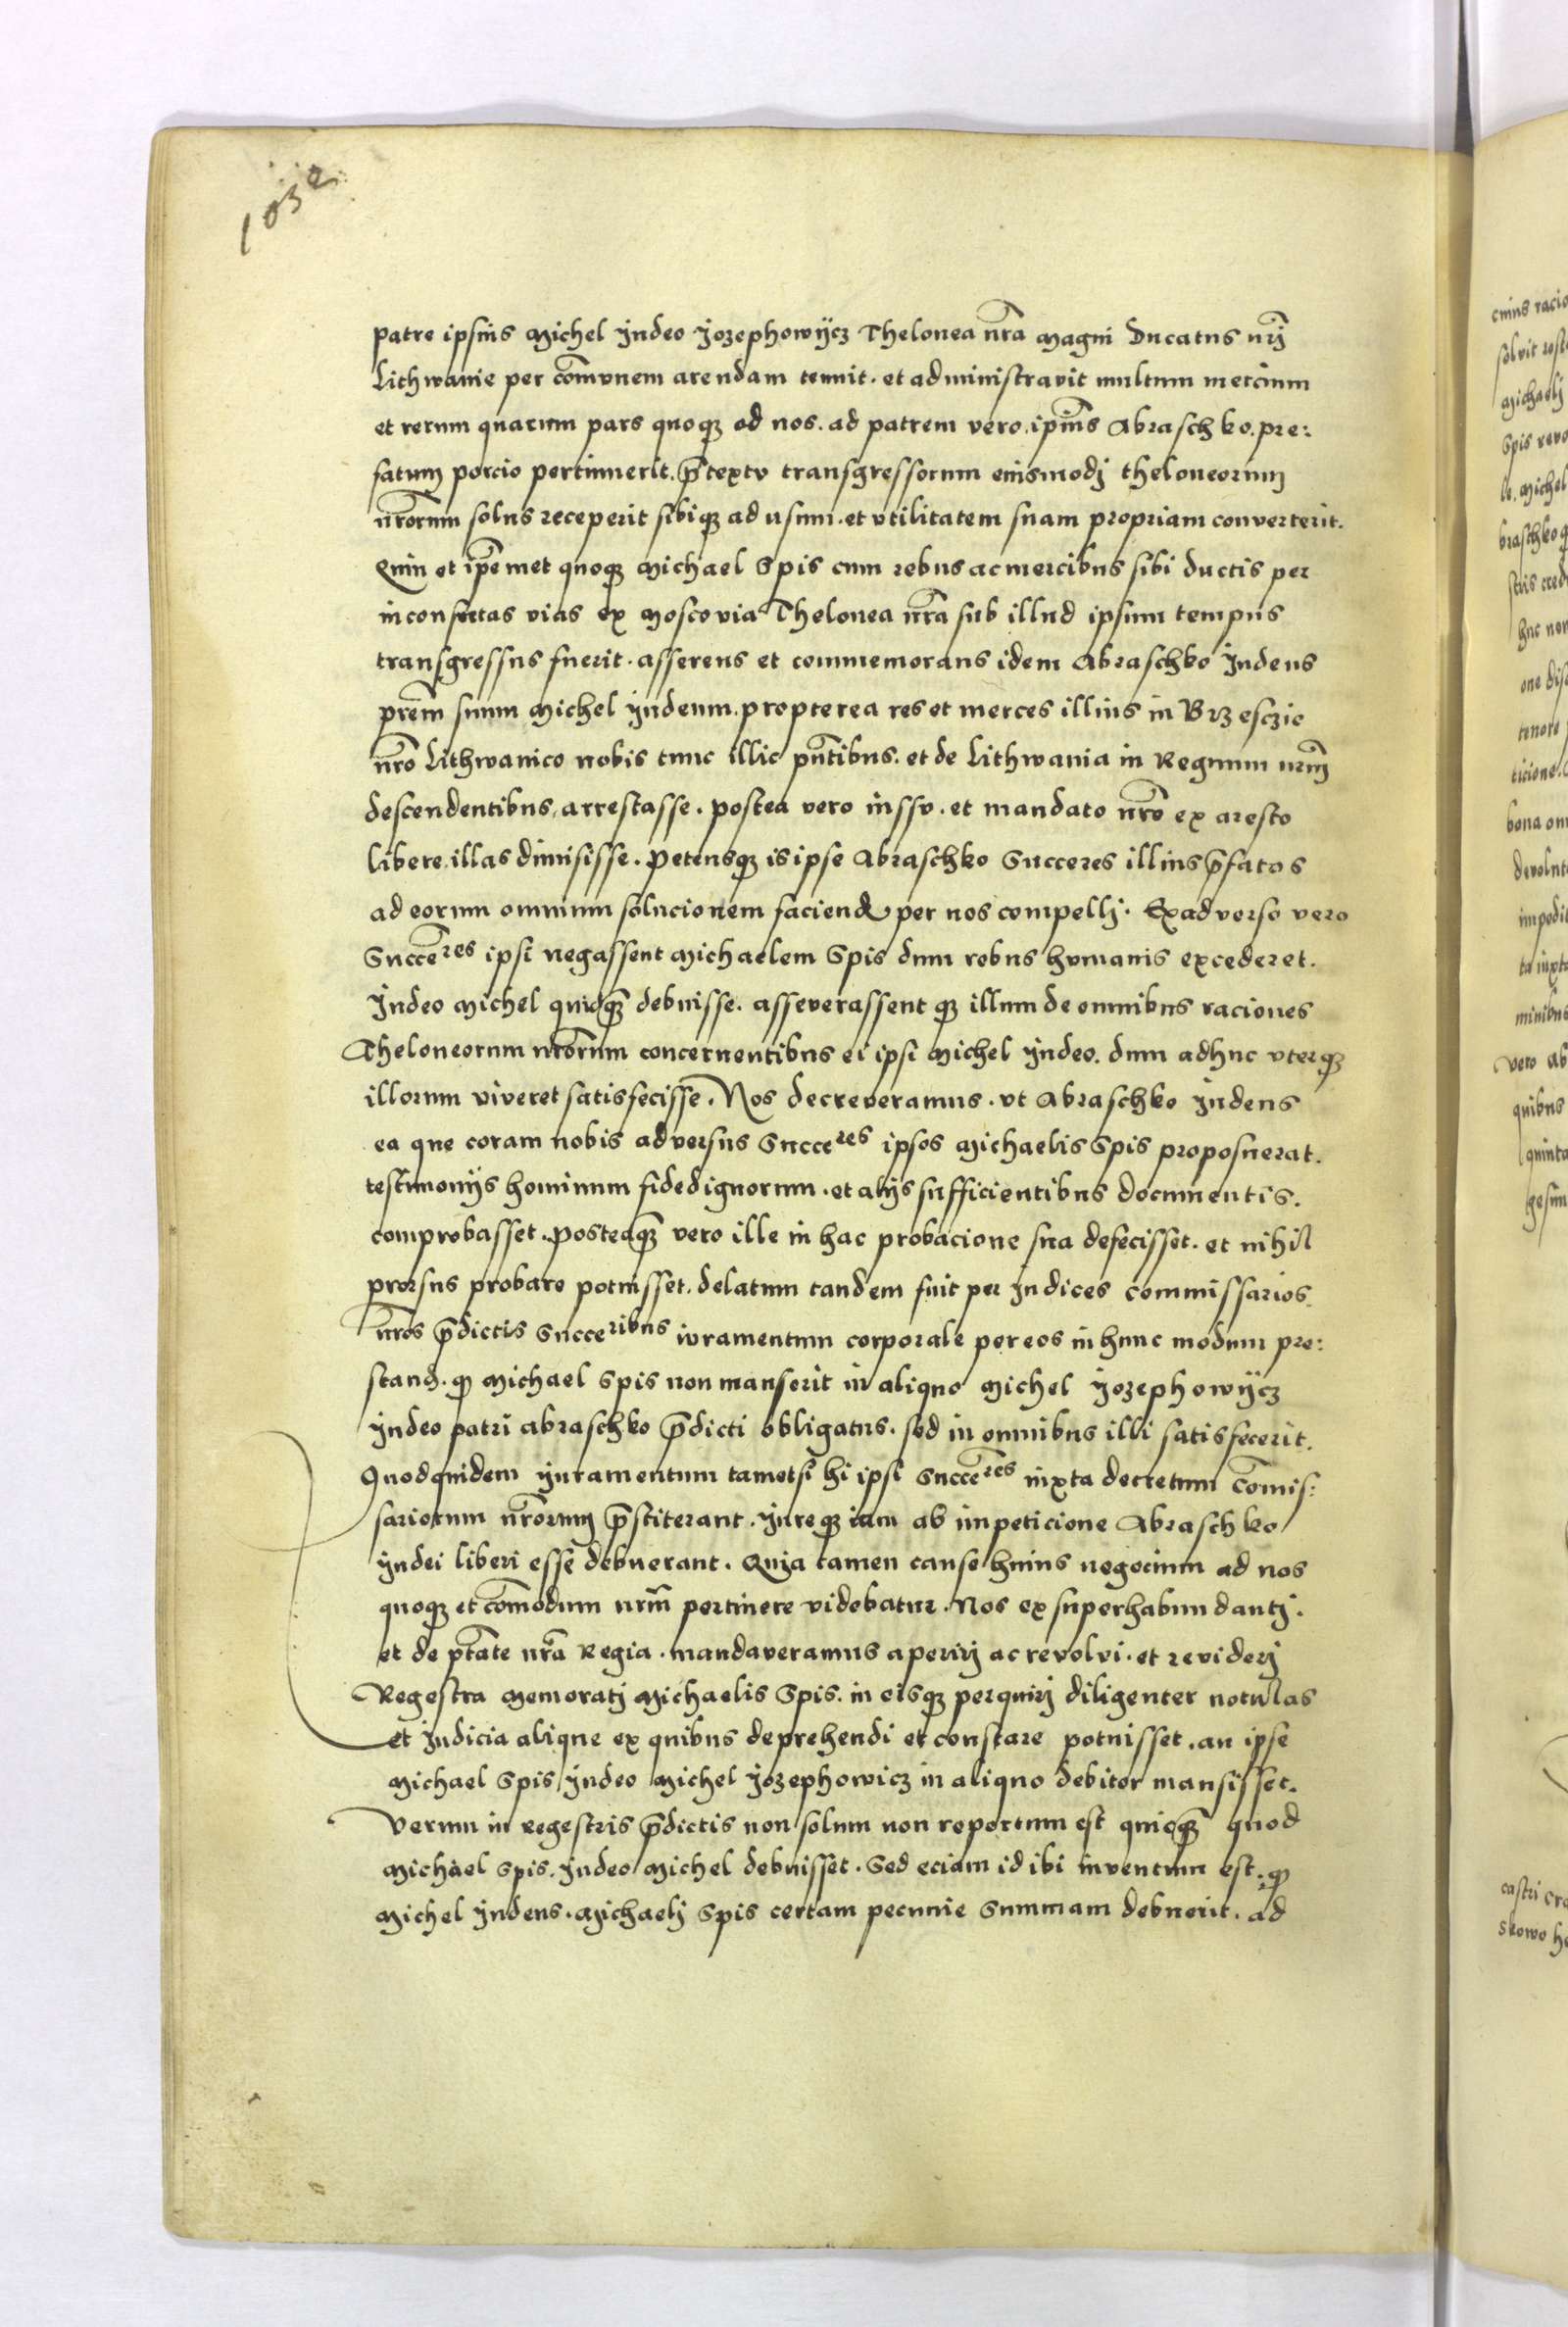 1032
patre ipsius Michel Judeo Jozephowijcz Thelonea nr̄a Magni Ducatus nr̄j
Lithwanie per com̄vnem arendam tenuit. et administravit multum mercium
et rerum quarum pars quoqꝫ ad nos. ad patrem vero. ip̄ius Abraschko. pre:
fatum porcio pertinuerit. p̄textv transgressorum eiusmodj theloneorum
nr̄orum solus receperit sibiqꝫ ad usum. et vtilitatem suam propriam converterit.
Quin et ip̄emet quoqꝫ Michael Spis cum rebus ac mercibus sibi ductis per
inconsuetas vias ex Moscovia Thelonea nr̄a sub illud ipsum tempus
transgressus fuerit. asserens et commemorans idem Abraschko Judeus
pr̄em suum Michel Judeum. propterea res et merces illius in Brzesczie
nr̄o Lithwanico nobis tunc illic pn̄tibus. et de Lithwania in Regnum nr̄m
descendentibus, arrestasse. postea vero iussv. et mandato nr̄o ex aresto
libere. illas dimisisse. Petensqꝫ is ipse Abraschko Succeres illius p̄fatos
ad eorum omnium solucionem faciend per nos compellj. Exadverso vero
Succēres ipsi negassent Michaelem Spis dum rebus hvmanis excederet.
Judeo Michel quicqꝫ̄ debuisse. asseverassentqꝫ illum de omnibus raciones
Theloneorum nr̄orum concernentibus ei ipsi Michel Judeo. dum adhuc vterqꝫ
illorum viveret satisfecisse. Nos decreveramus. vt Abraschko Judeus
ea que coram nobis adversus Succeres ipsos Michaelis Spis proposuerat.
testimonijs hominum fidedignorum. et alijs sufficientibus documentis.
comprobasset. Posteaqꝫ̄ vero ille in hac probacione sua defecisset. et nihil
prorsus probare potuisset. delatum tandem fuit per Judices commissarios
nr̄os p̄dictis Succeribus ivramentum corporale per eos in hunc modum pre:
stand. qꝫ Michael Spis non manserit in aliquo Michel Jozephowijcz
Judeo patri Abraschko p̄dicti obligatus. sed in omnibus illi satisfecerit.
Quodquidem Juramentum tametsi hi ipsi Succēres iuxta decretum Com̄is:
sariorum nr̄orum p̄stiterant. Jureqꝫ iam ab impeticione Abraschko
Judei liberi esse debuerant. Quia tamen cause huius negocium ad nos
quoqꝫ et com̄odum nr̄m pertinere videbatur. Nos ex superhabundantj.
et de ptāte nr̄a Regia. mandaveramus aperirj ac revolvi. et reviderj
Regestra memoratj Michaelis Spis. in eisqꝫ perquirj diligenter notulas
et Judicia alique ex quibus deprehendi et constare potuisset. an ipse
Michael Spis Judeo Michel Jozephowicz in aliquo debitor mansisset.
Verum in Regestris p̄dictis non solum non repertum est quicqꝫ̄ quod
Michael Spis. Judeo Michel debuisset. Sed eciam id ibi inventum est. qꝫ
Michel Judeus. Michaelj Spis certam pecunie summam debuerit. ad